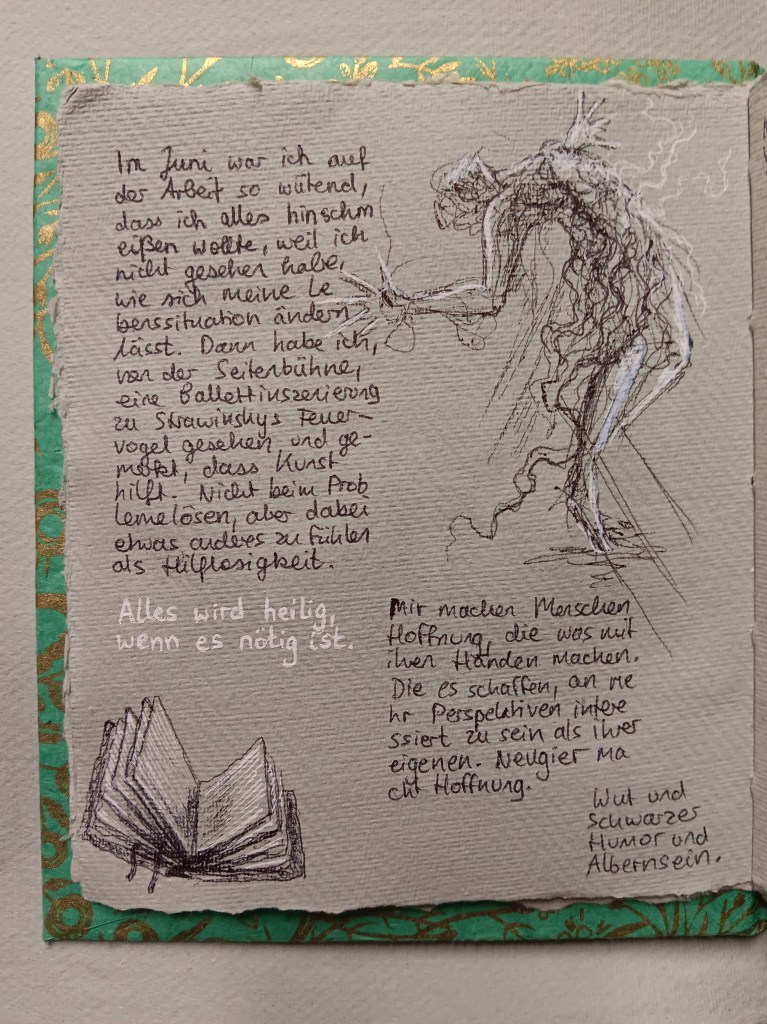 Im Juni war ich auf
der Arbeit so wütend,
dass ich alles hinschm
eißen wollte, weil ich
nicht gesehen habe,
wie sich meine Le
benssituation ändern
lässt. Dann habe ich,
von der Seitenbühne,
eine Ballettinszenierung
zu Strawinskys Feuer-
vogel gesehen, und ge-
merkt, dass Kunst
hilft. Nicht beim Prob
lemelösen, aber dabei
etwas anderes zu fühlen
als Hilflosigkeit.
Alles wird heilig,
wenn es nötig ist.
Mir machen Menschen
Hoffnung, die was mit
ihren Händen machen.
Die es schaffen, an me
hr Perspektiven intere
ssiert zu sein als ihrer
eigenen. Neugier ma
cht Hoffnung.
Wut und
schwarzer
Humor und
Albernsein.